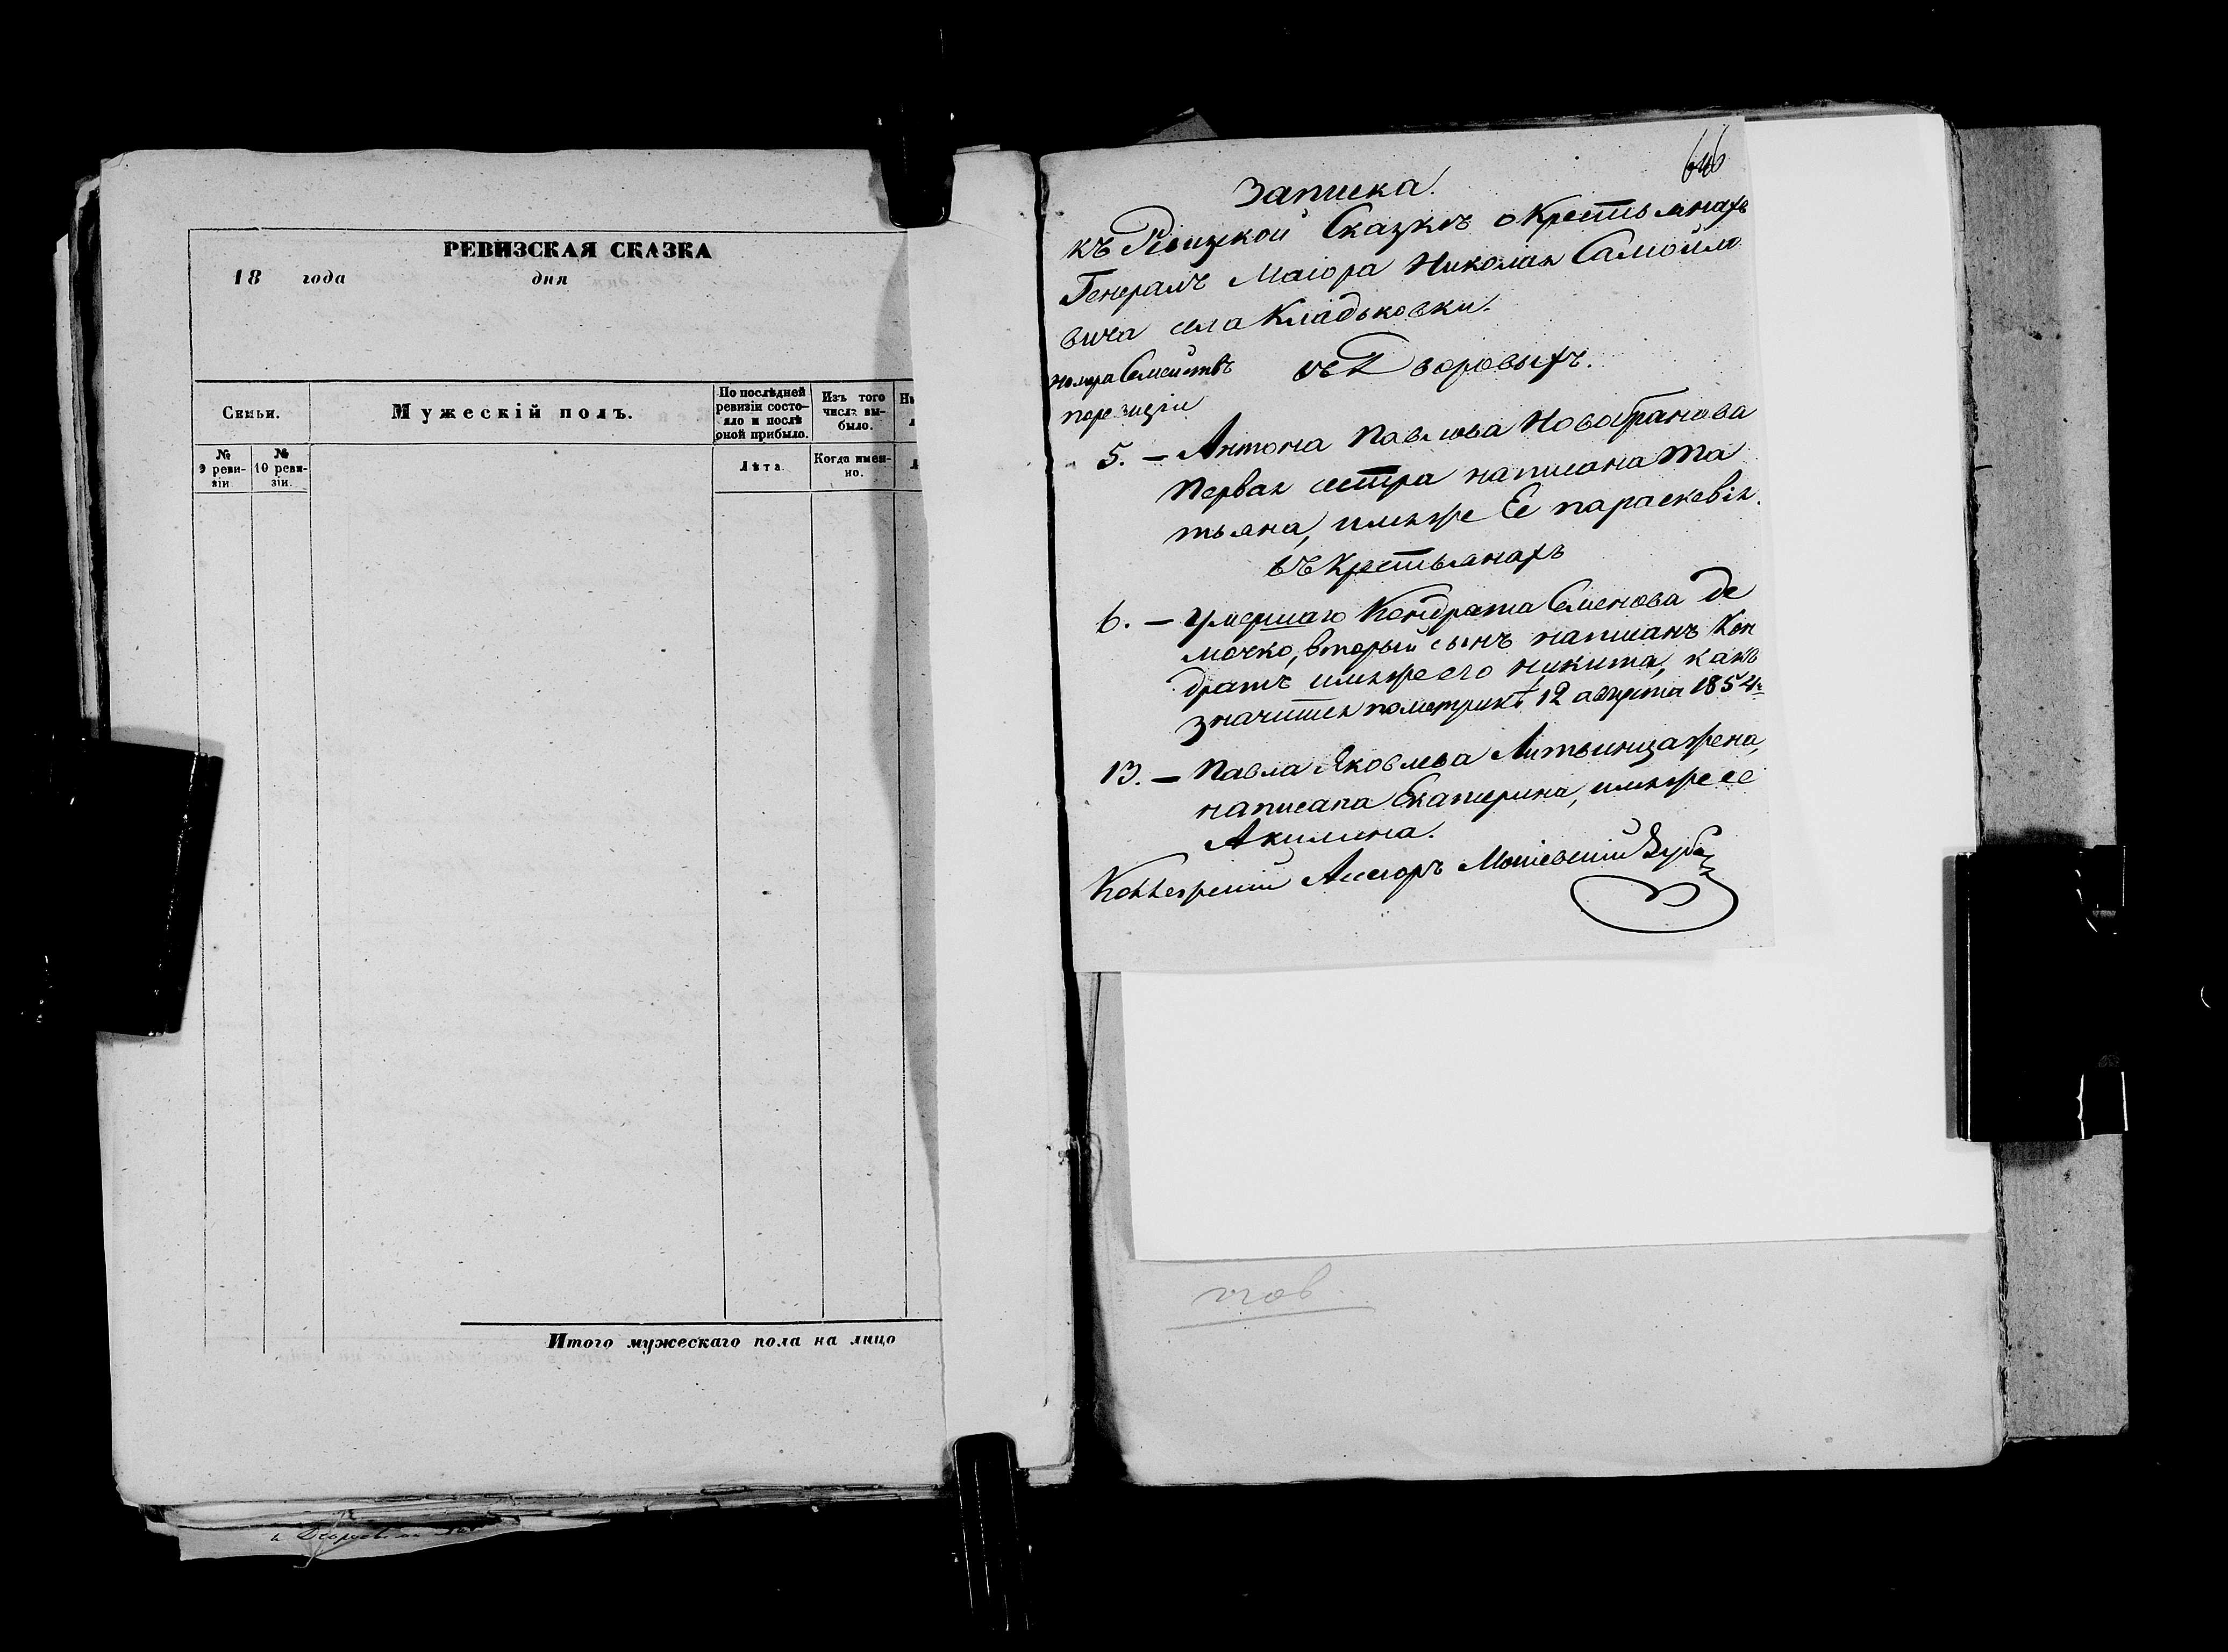 РЕВИЗСКАЯ СКАЗКА
18 года дня
Семьи.
Мужескій полъ.
По послѣдней
ревизіи состо-
яло и послѣ
оной прибыло.
Изъ того
числа вы-
было.
№
9 реви-
зіи.
№
10 реви-
зіи.
Лѣта.
Когда имен-
но.
Итого мужескаго пола на лицо
646
Записка.
къ Ревизкой Сказкѣ о Крестьянахъ
Генералъ Маіора Николая Самойло
вича села Кладьковки.
номера Семействъ
по ревизіи
въ Дворовыхъ.
5. — Антона Павлова Новобранова
первая сестра написана Та
тьяна, имя же Ее Параскевія.
въ Крестьянахъ
6. — Умершаго Кондрата Семенова Де
мочко, вторый сынъ написанъ Кон
дратъ имя же его Никита, какъ
значится по метрикѣ 12 августа 1854 г.
13. — Павла Яковлева Литвинца жена,
написана Екатерина, имя же ее
Акилина.
Коллежскій Ассесоръ